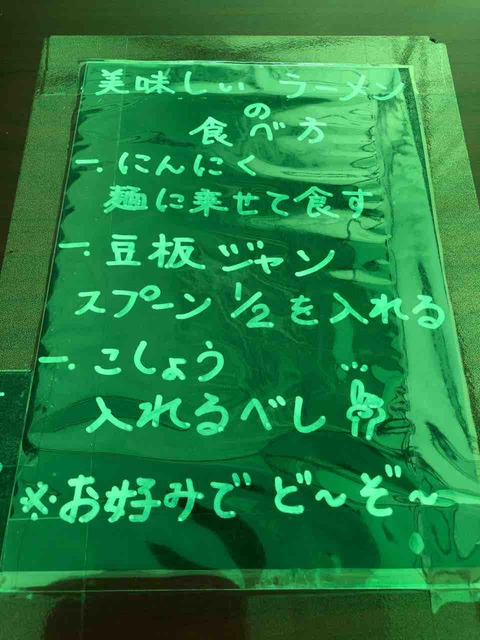 美味しい ラーメン
の
食べ方
一.にんにく
麺に乗せて食す
一.豆板ジャン
スプーン 1/2を入れる
一.こしょう
入れるべし
※お好みで ど〜ぞ〜